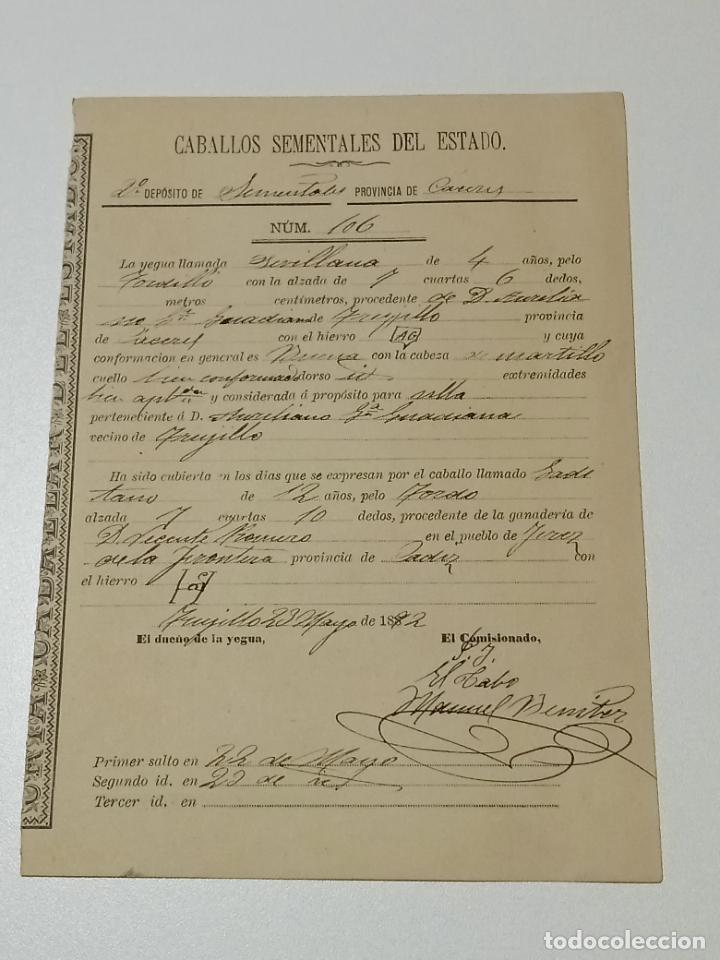 CABALLOS SEMENTALES DEL ESTADO.
2º DEPÓSITO DE Sementales PROVINCIA DE Caceres
NÚM. 106
La yegua llamada Sevillana de 4 años, pelo
Tordillo con la alzada de 7 cuartas 6 dedos,
metros centímetros, procedente de D. Aurelia
no Gª Guadiana de Trujillo provincia
de Caceres con el hierro [AG] y cuya
conformacion en general es Buena con la cabeza de martillo
cuello bien conformado dorso id extremidades
y considerada á propósito para silla
perteneciente á D. Aureliano Gª Guadiana
vecino de Trujillo
Ha sido cubierta en los dias que se expresan por el caballo llamado Gadi
tano de 12 años, pelo Tordo
alzada 7 cuartas 10 dedos, procedente de la ganadería de
D. Vicente Romero en el pueblo de Jerez
de la Frontera provincia de Cadiz con
el hierro
Trujillo 23 Mayo de 1892
El dueño de la yegua, El Comisionado,
El Cabo
Manuel Benitez
Primer salto en 22 de Mayo
Segundo id. en 23 de id
Tercer id. en
todocoleccion
todocoleccion.net